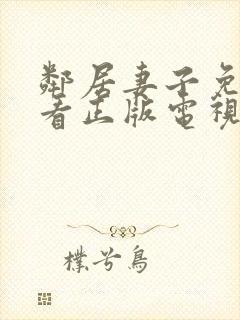 鄰居妻子免
看正版電視
樸兮鳥